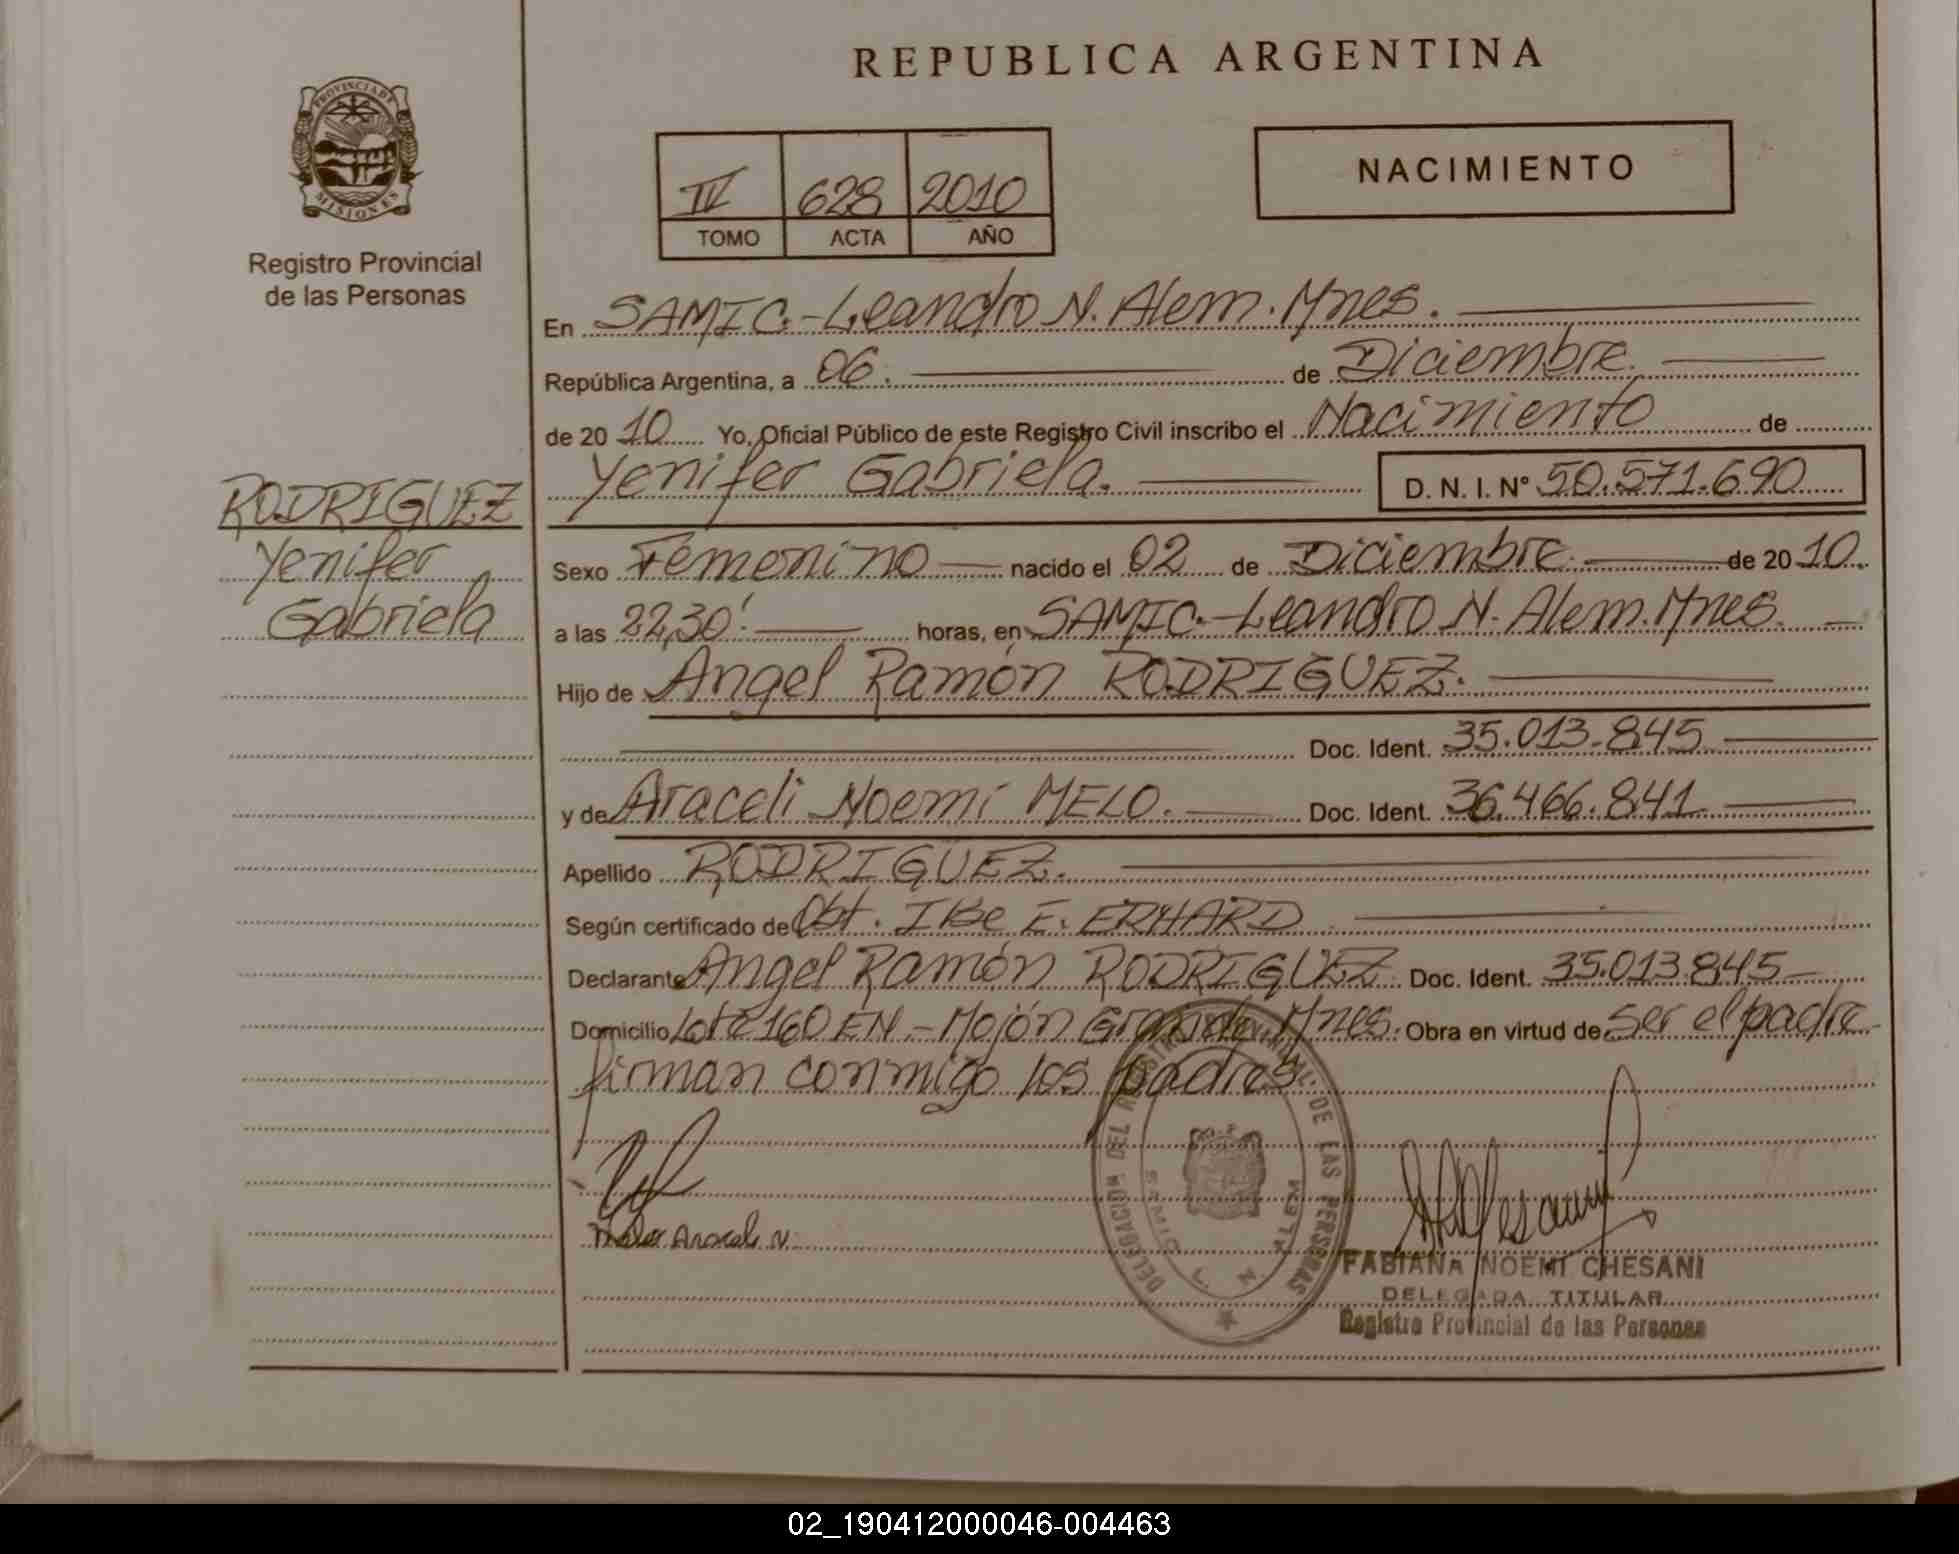 REPUBLICA ARGENTINA
PROVINCIA DE
MISIONES
Registro Provincial
de las Personas
IV 628 2010
TOMO ACTA AÑO
NACIMIENTO
En SAMIC.-Leandro N. Alem. Mnes.
República Argentina, a 06. de Diciembre.
de 20 10 Yo, Oficial Público de este Registro Civil inscribo el Nacimiento de
Yenifer Gabriela. D. N. I. N° 50.571.690
RODRIGUEZ
Yenifer
Gabriela
Sexo Femenino nacido el 02 de Diciembre. de 20 10.
a las 22,30'. horas, en SAMIC.-Leandro N. Alem. Mnes.
Hijo de Angel Ramón RODRIGUEZ.
Doc. Ident. 35.013.845
y de Araceli Noemí MELO. Doc. Ident. 36.466.841
Apellido RODRIGUEZ.
Según certificado de Obt. E. ERHARD
Declarante Angel Ramón RODRIGUEZ Doc. Ident. 35.013.845
Domicilio Lote 160 EN.-Mojón Grande Mnes. Obra en virtud de ser el padre
firman conmigo los padres.
DELEGACION DEL REGISTRO PROVINCIAL DE LAS PERSONAS
SAMIC L. N. ALEM
FABIANA NOEMI CHESANI
DELEGADA TITULAR
Registro Provincial de las Personas
02_190412000046-004463